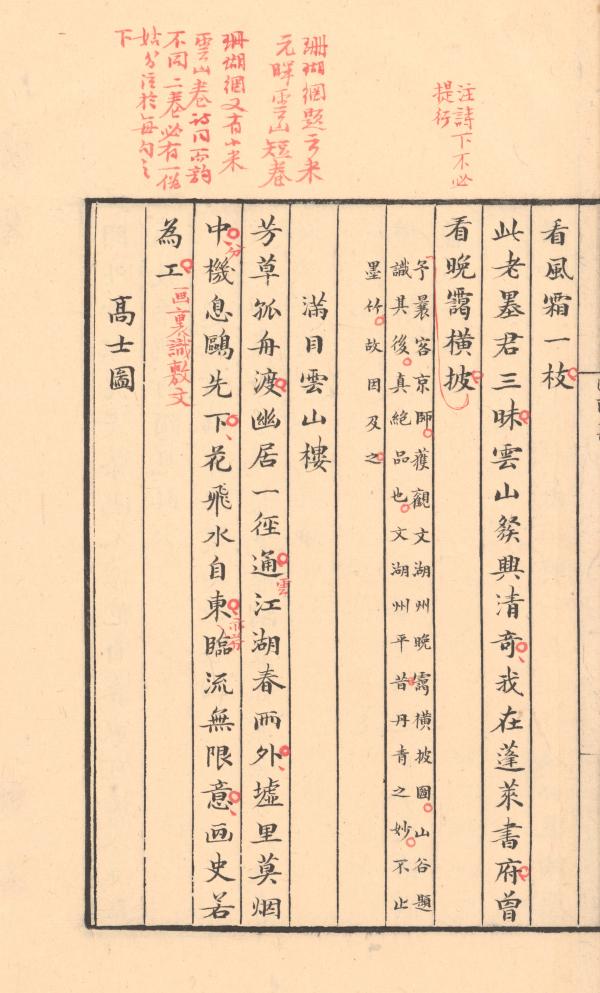 注詩下不必
提行
珊瑚網題云米
元暉雲山短卷
珊瑚網又有小米
雲山卷詩同而韵
不同二卷必有一偽
姑分注於每句之
下
看風霜一枝
此老墨君三昧雲山發興清奇我在蓬萊書府曾
看晚靄橫披
予曩客京師獲觀文湖州晚靄橫披圖山谷題
識其後真絕品也文湖州平昔丹青之妙不止
墨竹故因及之
滿目雲山樓
芳草孤舟渡幽居一徑通江湖春雨外墟里莫烟
雲
中機息鷗先下花飛水自東臨流無限意画史若
分
為工
画裏識敷文
高士圖